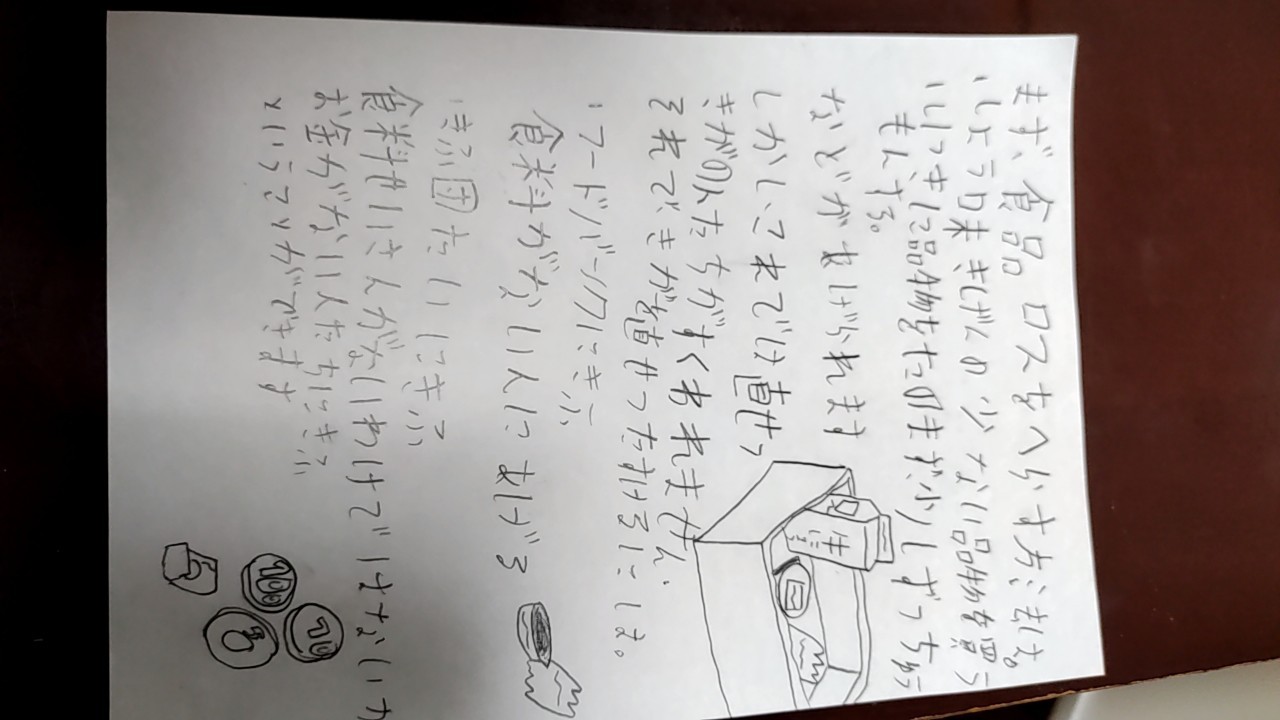 まず、食品ロスをへらす方法は。
・しょう味きげんの少ない品物を買う
・いっきに品物をたのまず少しずつちゅう
もんする。
などがあげられます
しかしこれでは直せつ
きがの人たちがすくわれません。
それで、きがを直せつたすけるには。
・フードバンクにきふ
食料がない人にあげる
・きふ団たいにきふ
食料せいさんがないわけではないが
お金がない人たちにきふ
ということができます
牛にゅう
10
100
5